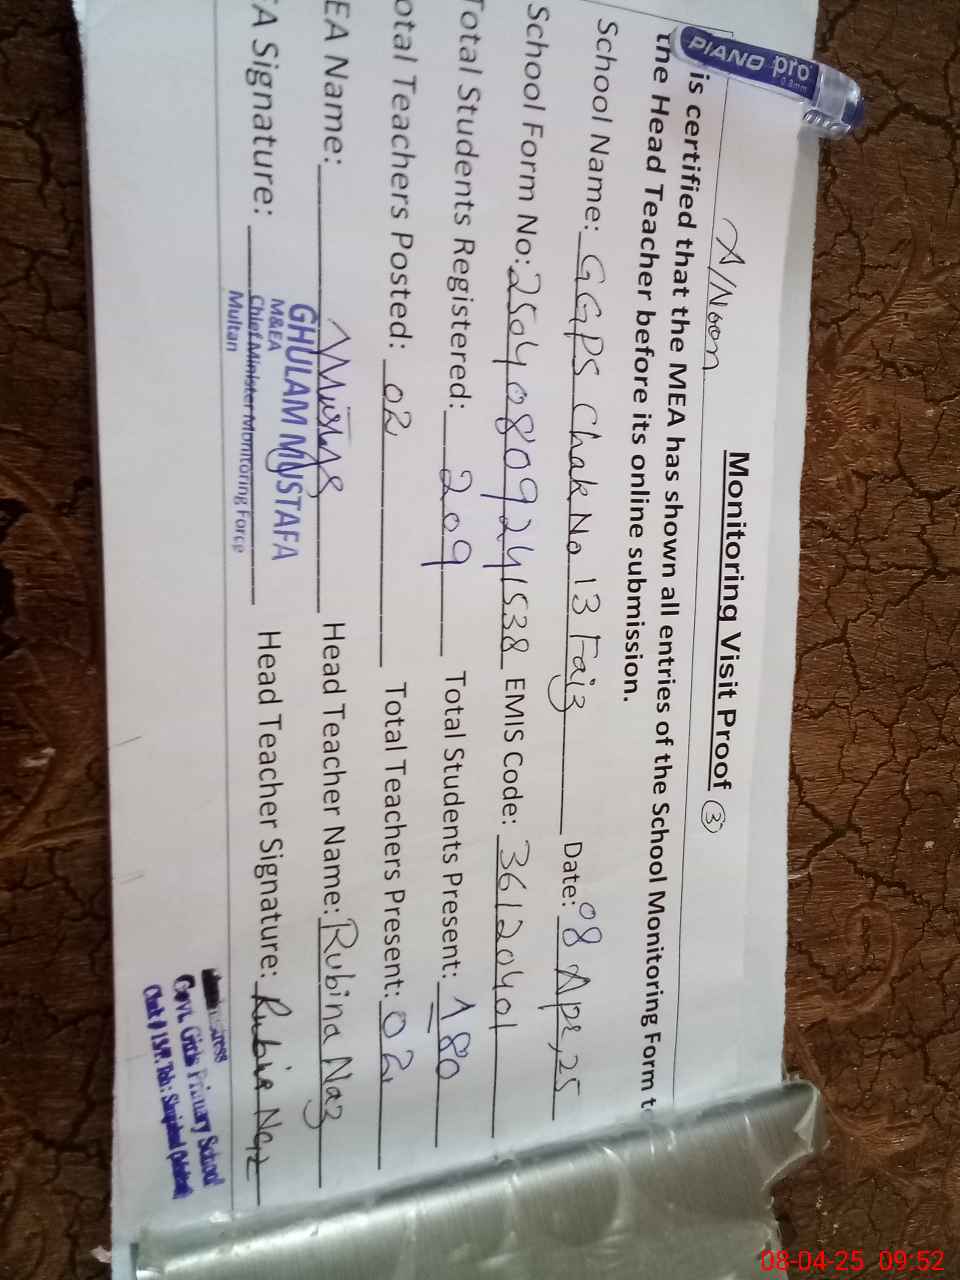 PIANO pro
0.8mm
A/Noon
Monitoring Visit Proof ③
is certified that the MEA has shown all entries of the School Monitoring Form t
the Head Teacher before its online submission.
School Name: GGPS Chak No 13 Faiz Date: 08 Apr, 25
School Form No: 25040809241538 EMIS Code: 36120401
Total Students Registered: 209 Total Students Present: 180
otal Teachers Posted: 02 Total Teachers Present: 02
EA Name: Head Teacher Name: Rubina Naz
EA Signature: Head Teacher Signature: Rubina Naz
GHULAM MUSTAFA
M&EA
Chief Minister Monitoring Force
Multan
Govt. Girls Primary School
08-04-25 09:52